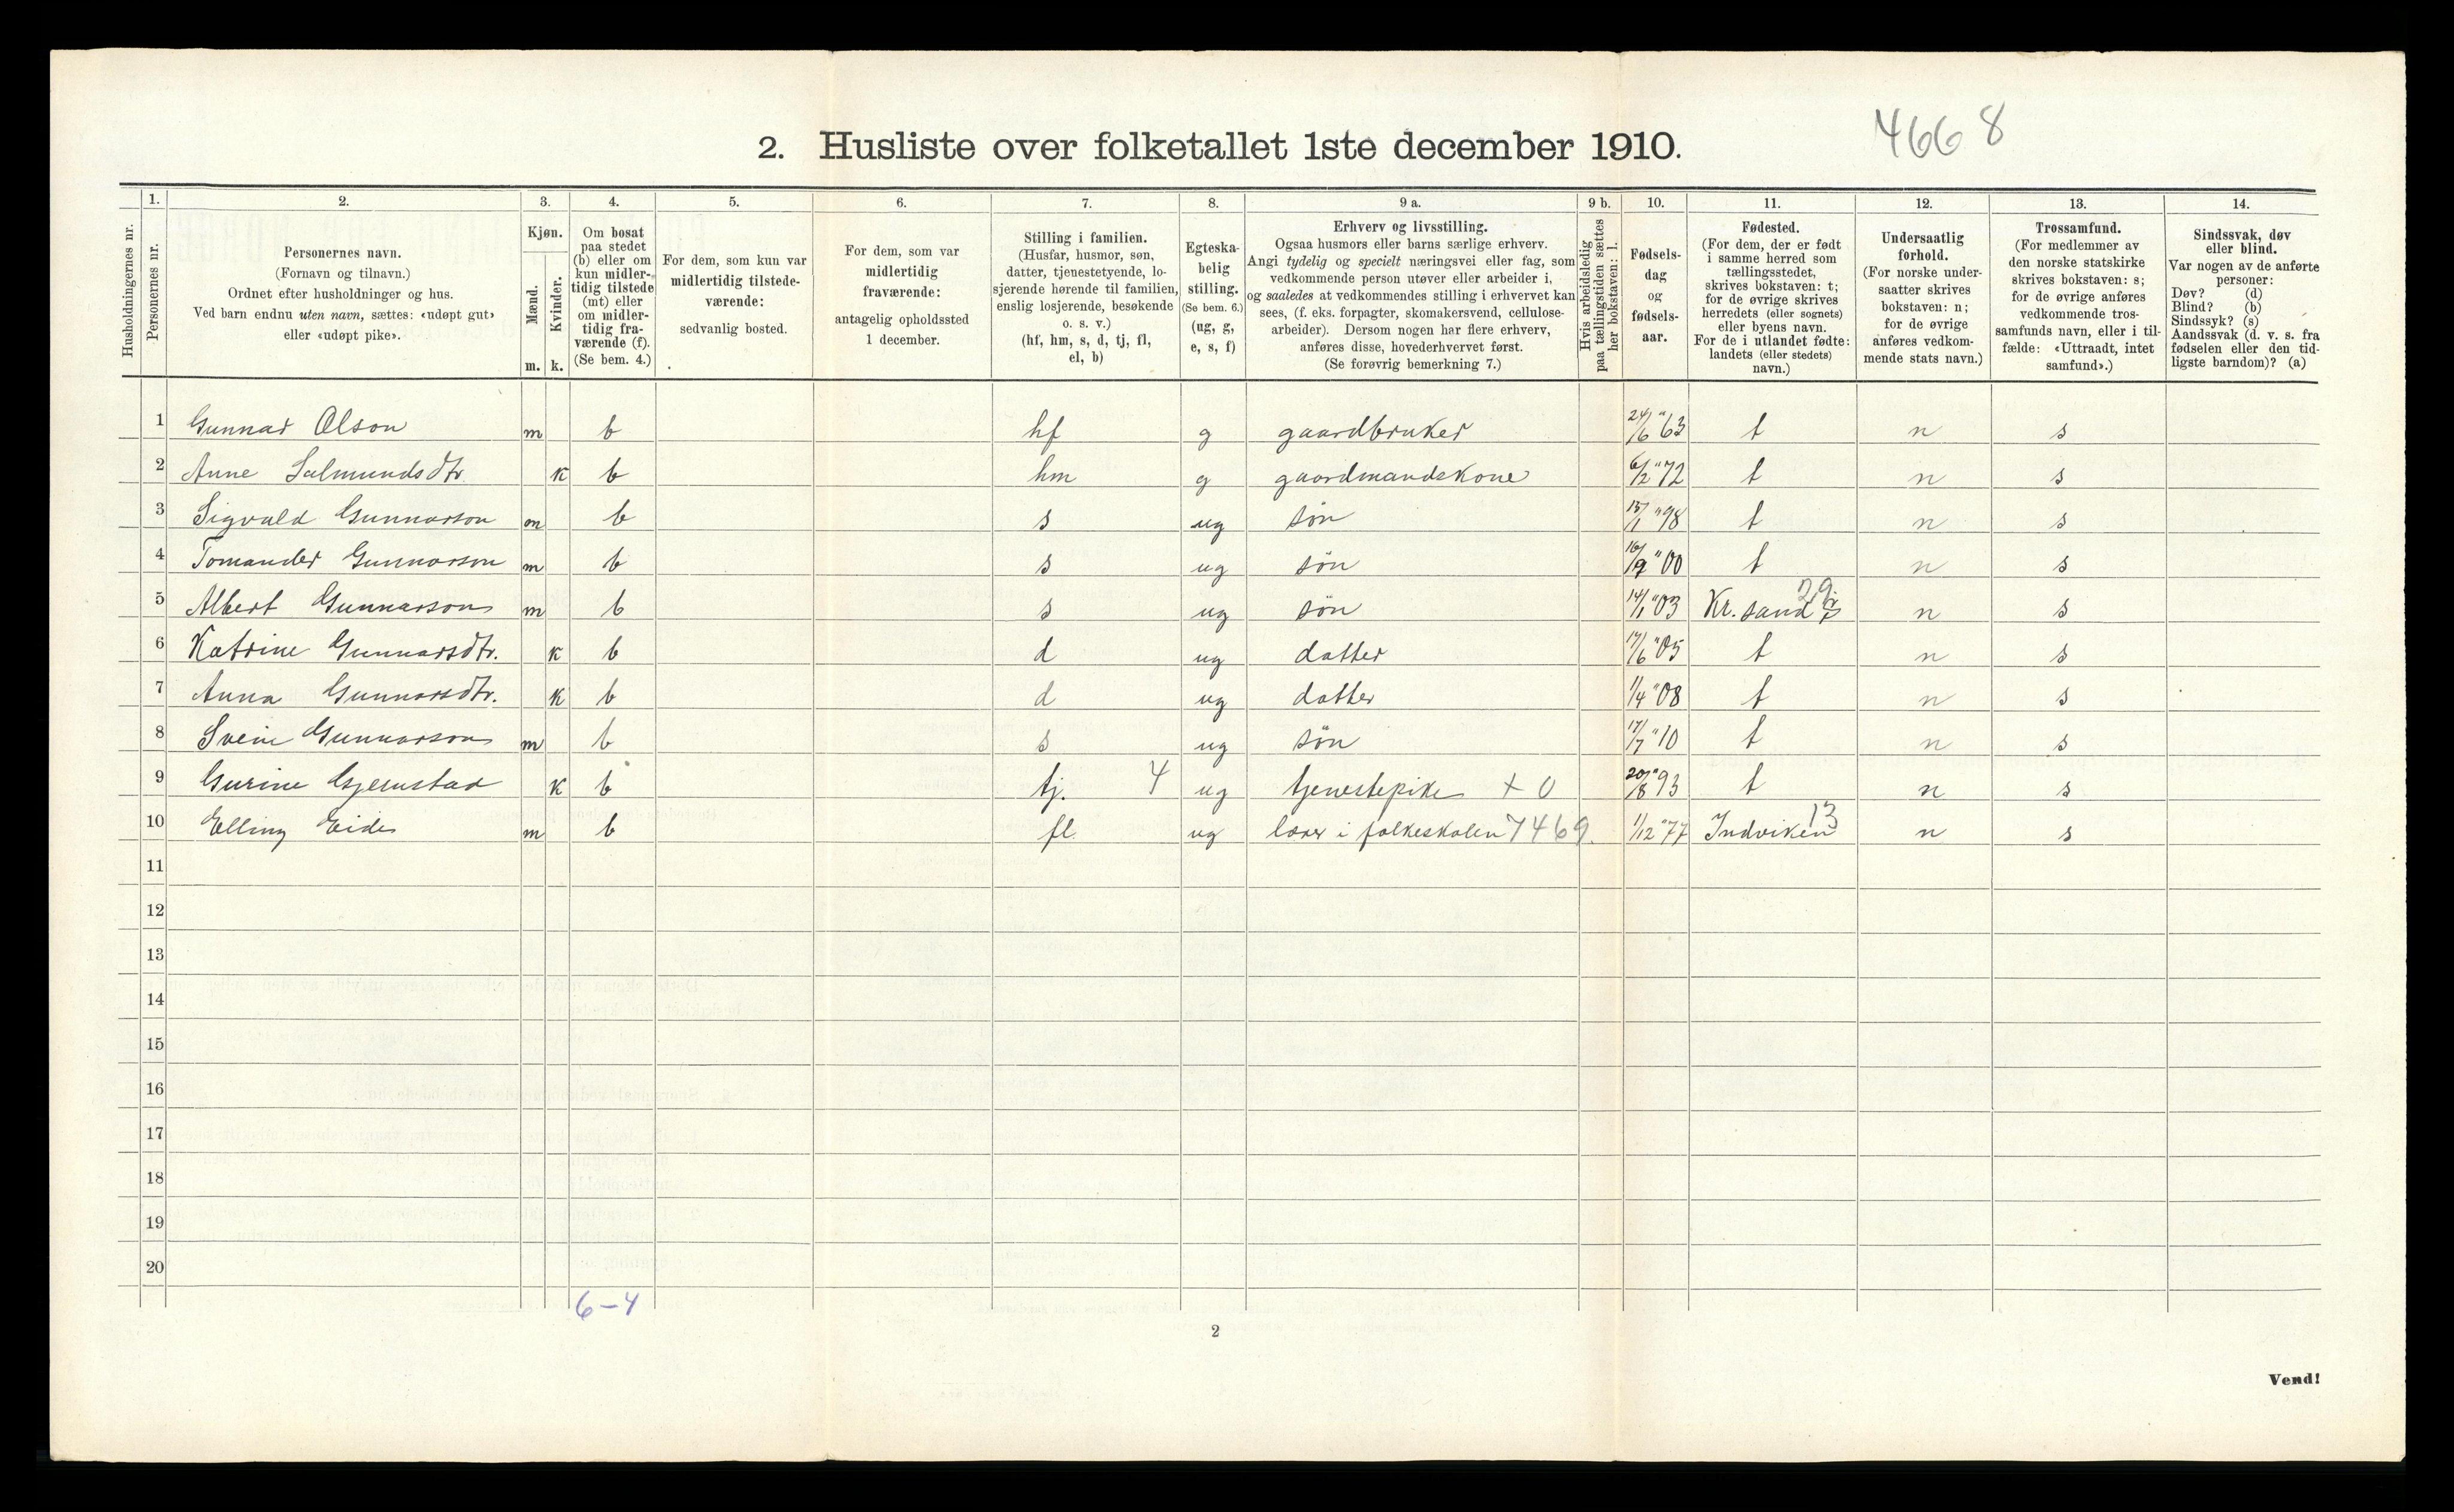 4668
2. Husliste over folketallet 1ste december 1910.
Husholdningernes nr.
1.
Personernes nr.
2.
Personernes navn.
(Fornavn og tilnavn.)
Ordnet efter husholdninger og hus.
Ved barn endnu uten navn, sættes: «udøpt gut»
eller «udøpt pike».
3.
Kjøn.
Mænd.
m.
Kvinder.
k.
4.
Om bosat
paa stedet
(b) eller om
kun midler-
tidig tilstede
(mt) eller
om midler-
tidig fra-
værende (f).
(Se bem. 4.)
5.
For dem, som kun var
midlertidig tilstede-
værende:
sedvanlig bosted.
6.
For dem, som var
midlertidig
fraværende:
antagelig opholdssted
1 december.
7.
Stilling i familien.
(Husfar, husmor, søn,
datter, tjenestetyende, lo-
sjerende hørende til familien,
enslig losjerende, besøkende
o. s. v.)
(hf, hm, s, d, tj, fl,
el, b)
8.
Egteska-
belig
stilling.
(Se bem. 6.)
(ug, g,
e, s, f)
9 a.
Erhverv og livsstilling.
Ogsaa husmors eller barns særlige erhverv.
Angi tydelig og specielt næringsvei eller fag, som
vedkommende person utøver eller arbeider i,
og saaledes at vedkommendes stilling i erhvervet kan
sees, (f. eks. forpagter, skomakersvend, cellulose-
arbeider). Dersom nogen har flere erhverv,
anføres disse, hovederhvervet først.
(Se forøvrig bemerkning 7.)
9 b.
Hvis arbeidsledig
paa tællingstiden sættes
her bokstaven: l.
10.
Fødsels-
dag
og
fødsels-
aar.
11.
Fødested.
(For dem, der er født
i samme herred som
tællingsstedet,
skrives bokstaven: t;
for de øvrige skrives
herredets (eller sognets)
eller byens navn.
For de i utlandet fødte:
landets (eller stedets)
navn.)
12.
Undersaatlig
forhold.
(For norske under-
saatter skrives
bokstaven: n;
for de øvrige
anføres vedkom-
mende stats navn.)
13.
Trossamfund.
(For medlemmer av
den norske statskirke
skrives bokstaven: s;
for de øvrige anføres
vedkommende tros-
samfunds navn, eller i til-
fælde: «Uttraadt, intet
samfund».)
14.
Sindssvak, døv
eller blind.
Var nogen av de anførte
personer:
Døv? (d)
Blind? (b)
Sindssyk? (s)
Aandssvak (d. v. s. fra
fødselen eller den tid-
ligste barndom)? (a)
1 Gunnar Olson m b hf g gaardbruker 24/6 "63 t n s
2 Anne Salmundsdtr. k b hm g gaardmandskone 6/2 "72 t n s
3 Sigvald Gunnarson m b s ug søn 15/1 "98 t n s
4 Tomander Gunnarson m b s ug søn 16/9 "00 t n s
5 Albert Gunnarson m b s ug søn 14/1 "03 Kr. sand 29 n s
6 Katrine Gunnarsdtr. k b d ug datter 17/6 "05 t n s
7 Anna Gunnarsdtr. k b d ug datter 1/4 "08 t n s
8 Svein Gunnarson m b s ug søn 17/7 "10 t n s
9 Gurine Gjernstad k b tj. 4 ug tjenestepike + 0 20/8 "93 t n s
10 Elling Eide m b fl. ug lærer i folkeskolen 7469 1/12 "77 Indviken 13 n s
11
12
13
14
15
16
17
18
19
20
6-4
2
Vend!